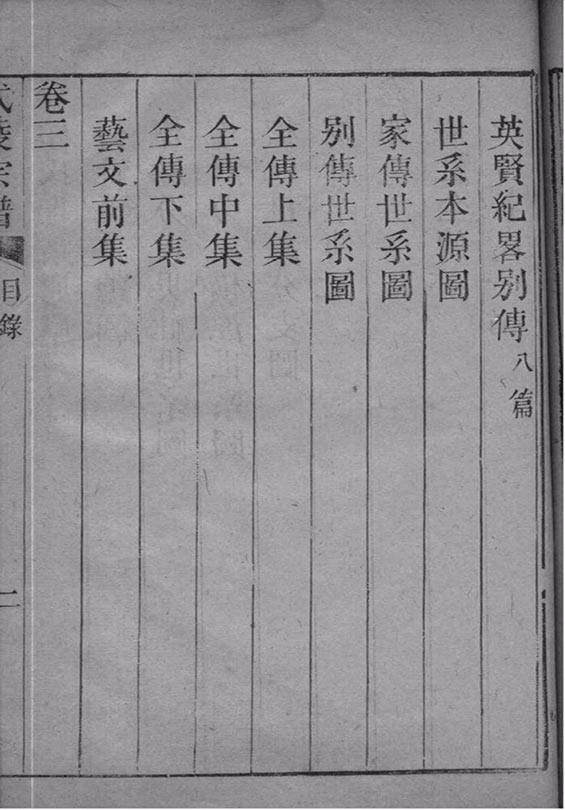 英賢紀畧别傳八篇
世系本源圖
家傳世系圖
别傳世系圖
全傳上集
全傳中集
全傳下集
藝文前集
卷三
宗譜
目錄